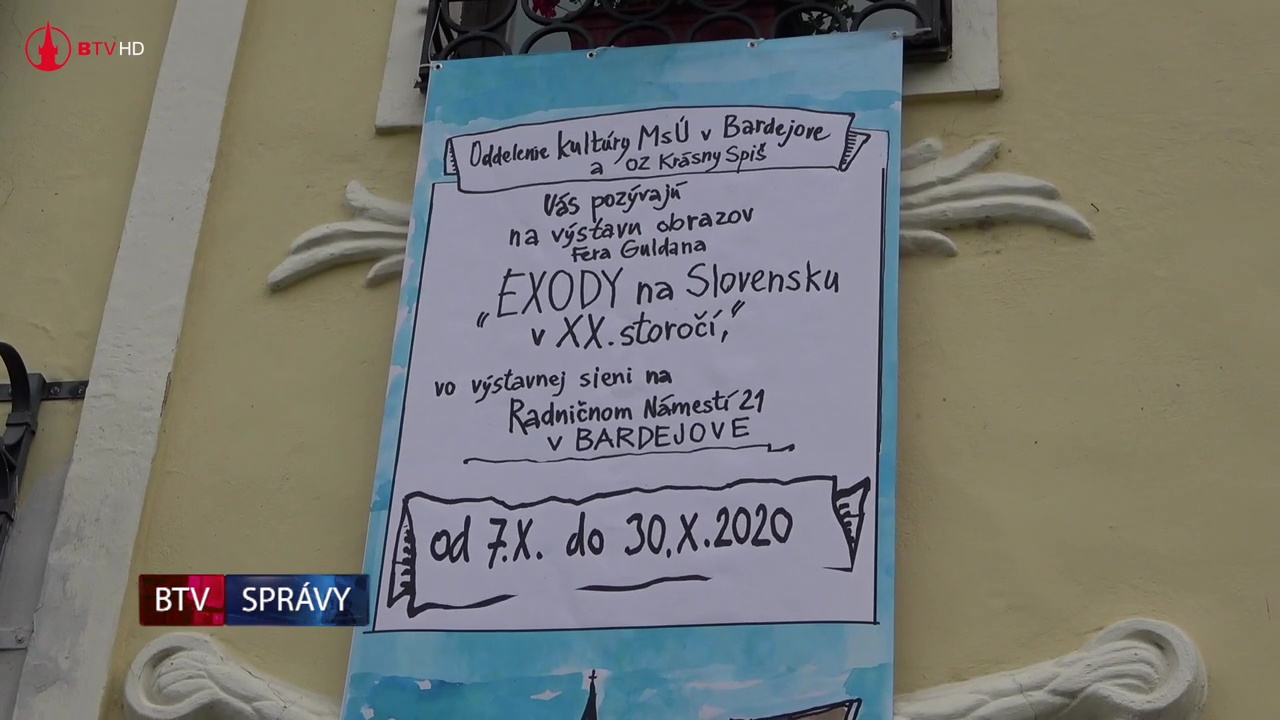 BTV HD
Oddelenie kultúry MsÚ v Bardejove
a OZ Krásny Spiš
Vás pozývajú
na výstavu obrazov
Fera Guldana
„EXODY na Slovensku
v XX. storočí,"
vo výstavnej sieni na
Radničnom Námestí 21
v BARDEJOVE
od 7.X. do 30.X.2020
BTV SPRÁVY